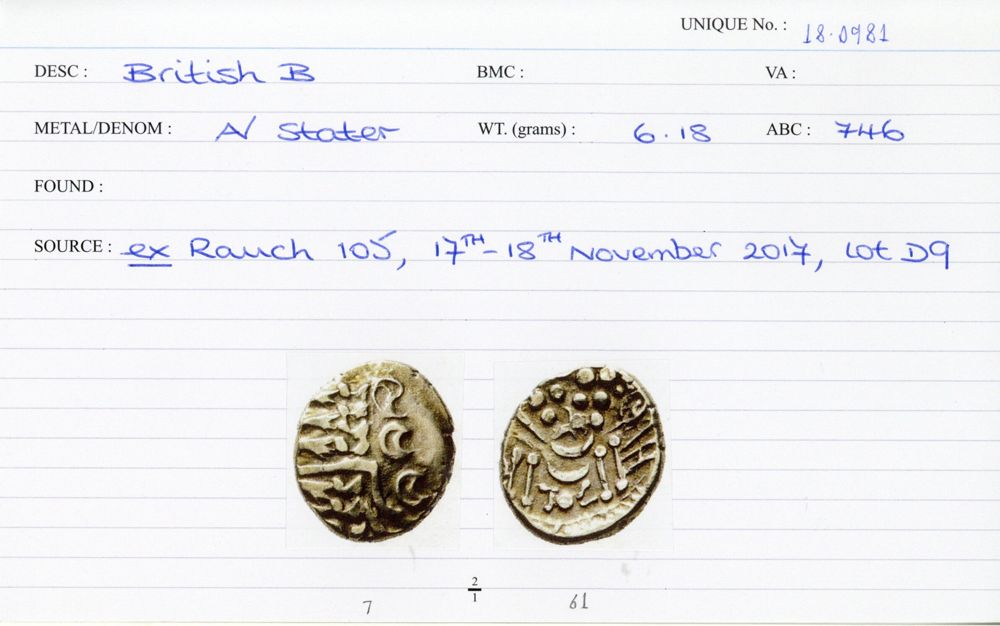 UNIQUE No. : 18.0981
DESC : British B BMC : VA :
METAL/DENOM : AV Stater WT. (grams) : 6.18 ABC : 746
FOUND :
SOURCE : ex Rauch 105, 17TH-18TH November 2017, Lot D9
2
1
7 61